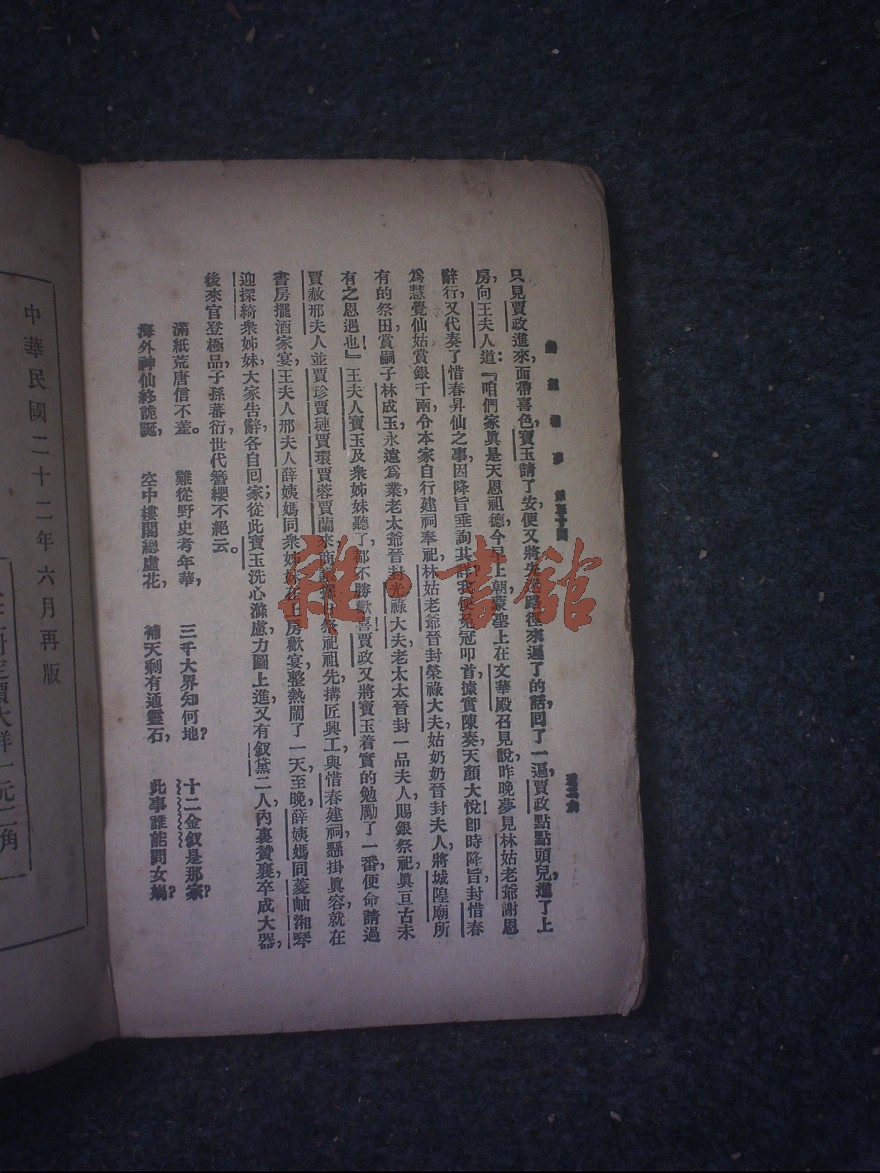 只見賈政進來,面帶喜色,寶玉請了安,便又將來遍了的話,回了一遍,賈政點點頭兒,進了上
房,向王夫人道:『咱們家眞是天恩祖德,今早上朝,蒙聖上在文華殿召見,說昨晚夢見林姑老爺謝恩
辭行,又代奏了惜春昇仙之事,因降旨垂詢其詳,我便免冠叩首,據實陳奏,天顏大悅,卽時降旨,封惜春
爲慧覺仙姑,賞銀千兩,令本家自行建祠奉祀,林姑老爺晉封榮祿大夫,姑奶奶晉封夫人,將城隍廟所
有的祭田,賞嗣子林成玉,永遠爲業,老太爺晉封光祿大夫,老太太晉封一品夫人,賜銀祭祀,眞亘古未
有之恩遇也!』王夫人寶玉及衆姊妹聽了,都不勝歡喜,賈政又將寶玉着實的勉勵了一番,便命請過
賈赦邢夫人並賈珍賈璉賈環賈蓉賈蘭來,祭祀祖先,搆匠興工,與惜春建祠,懸掛眞容,就在
書房擺酒家宴,王夫人邢夫人薛姨媽同衆姊妹在上房歡宴,整熱鬧了一天,至晚,薛姨媽同菱岫湘琴
迎探綺衆姊妹,大家告辭,各自回家,從此寶玉洗心滌慮,力圖上進,又有釵黛二人內裏贊襄,卒成大器,
後來官登極品,子孫蕃衍,世代簪纓不絕云。
滿紙荒唐信不差。 難從野史考年華, 三千大界知何地? 十二金釵是那家?
海外神仙終詭誕, 空中樓閣總虛花, 補天剩有通靈石, 此事誰能問女媧?
中華民國二十二年六月再版
定價大洋一元二角
雜·書館